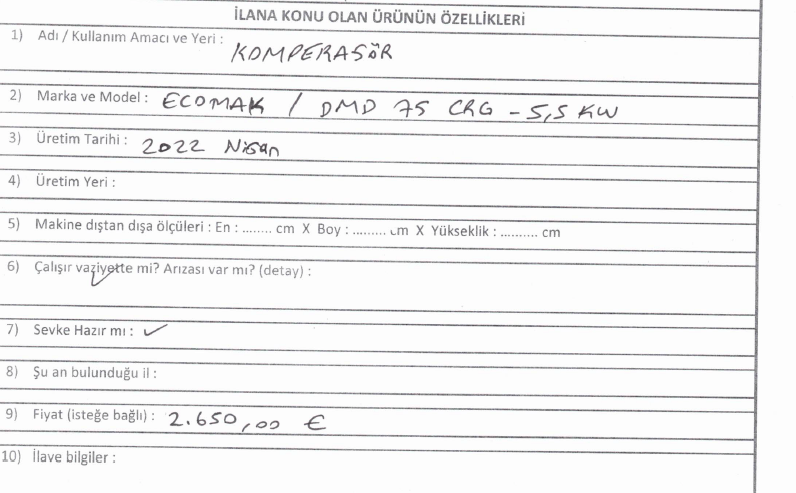 İLANA KONU OLAN ÜRÜNÜN ÖZELLİKLERİ
1) Adı / Kullanım Amacı ve Yeri : KOMPERASÖR
2) Marka ve Model : ECOMAK / DMD 75 CRG - 5,5 KW
3) Üretim Tarihi : 2022 Nisan
4) Üretim Yeri :
5) Makine dıştan dışa ölçüleri : En : ........ cm X Boy : ......... cm X Yükseklik : .......... cm
6) Çalışır vaziyette mi? Arızası var mı? (detay) :
7) Sevke Hazır mı : ✓
8) Şu an bulunduğu il :
9) Fiyat (isteğe bağlı) : 2.650,00 €
10) İlave bilgiler :